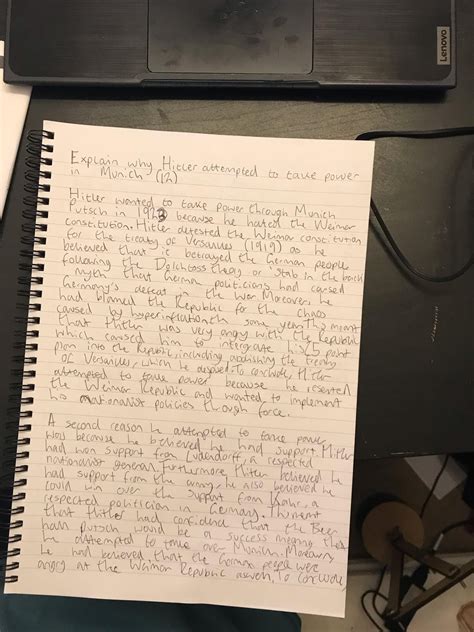 Lenovo
Explain why Hitler attempted to take power
in Munich (12)
Hitler wanted to take power through Munich
Putsch in 1923 because he hated the Weimar
constitution. Hitler detested the Weimar constitution
for the treaty of Versailles (1919) as he
believed that it betrayed the German people
following the Dolchstoss theory or 'stab in the back
myth that German politicians had caused
Germany's defeat in the war. Moreover, he
had blamed the Republic for the chaos
caused by hyperinflation same year. This meant
that Hitler was very angry with the Republic
which caused him to intergrate his 25 point
plan into the Republic, including abolishing the treaty
of Versailles, which he despised. To conclude, Hitler
attempted to take power because he resented
the Weimar Republic and wanted to implement
his nationalist policies through force.
A second reason he attempted to take power
was because he believed he had support. Hitler
had won support from Ludendorff, a respected
nationalist general. Furthermore, Hitler believed he
had support from the army, he also believed he
could win over the support from Kahr, a
respected politician in Germany. This meant
that Hitler had confidence that the Beer
hall Putsch would be a success meaning
he attempted to take over Munich. Moreover,
he had believed that the German people were
angry at the Weimar Republic aswell. To conclude,